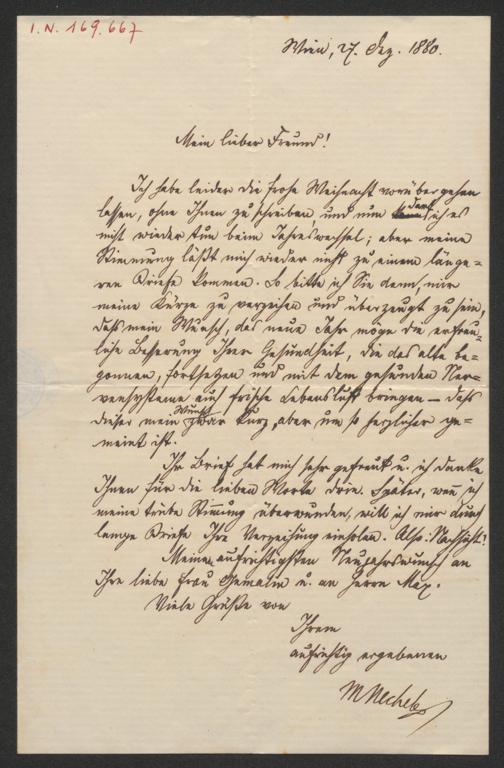 I. N. 169.667
Wien, 27. Dez. 1880.
Mein lieber Freund!
Ich habe leider die frohe Weihnacht vorübergehen
lassen, ohne Ihnen zu schreiben, und nun darf ich es
nicht wieder thun beim Jahreswechsel; aber meine
Stimmung läßt mich wieder nicht zu einem länge=
ren Briefe kommen. So bitte ich Sie denn, mir
meine Kürze zu verzeihen und überzeugt zu sein,
daß mein Wunsch, das neue Jahr möge die erfreu=
liche Besserung Ihrer Gesundheit, die das alte be=
gonnen, fortsetzen und mit dem gesunden Ner=
vensysteme auch frische Lebensluft bringen – daß
dieser mein Wunsch zwar kurz, aber um so herzlicher ge=
meint ist.
Ihr Brief hat mich sehr gefreut u. ich danke
Ihnen für die lieben Worte drin. Später, wenn ich
meine trübe Stimmung überwunden, will ich mir durch
lange Briefe Ihre Verzeihung einholen. Also: Nachsicht!
Meinen aufrichtigsten Neujahrswunsch an
Ihre liebe Frau Gemalin u. an Herrn Max.
Viele Grüße von
Ihrem
aufrichtig ergebenen